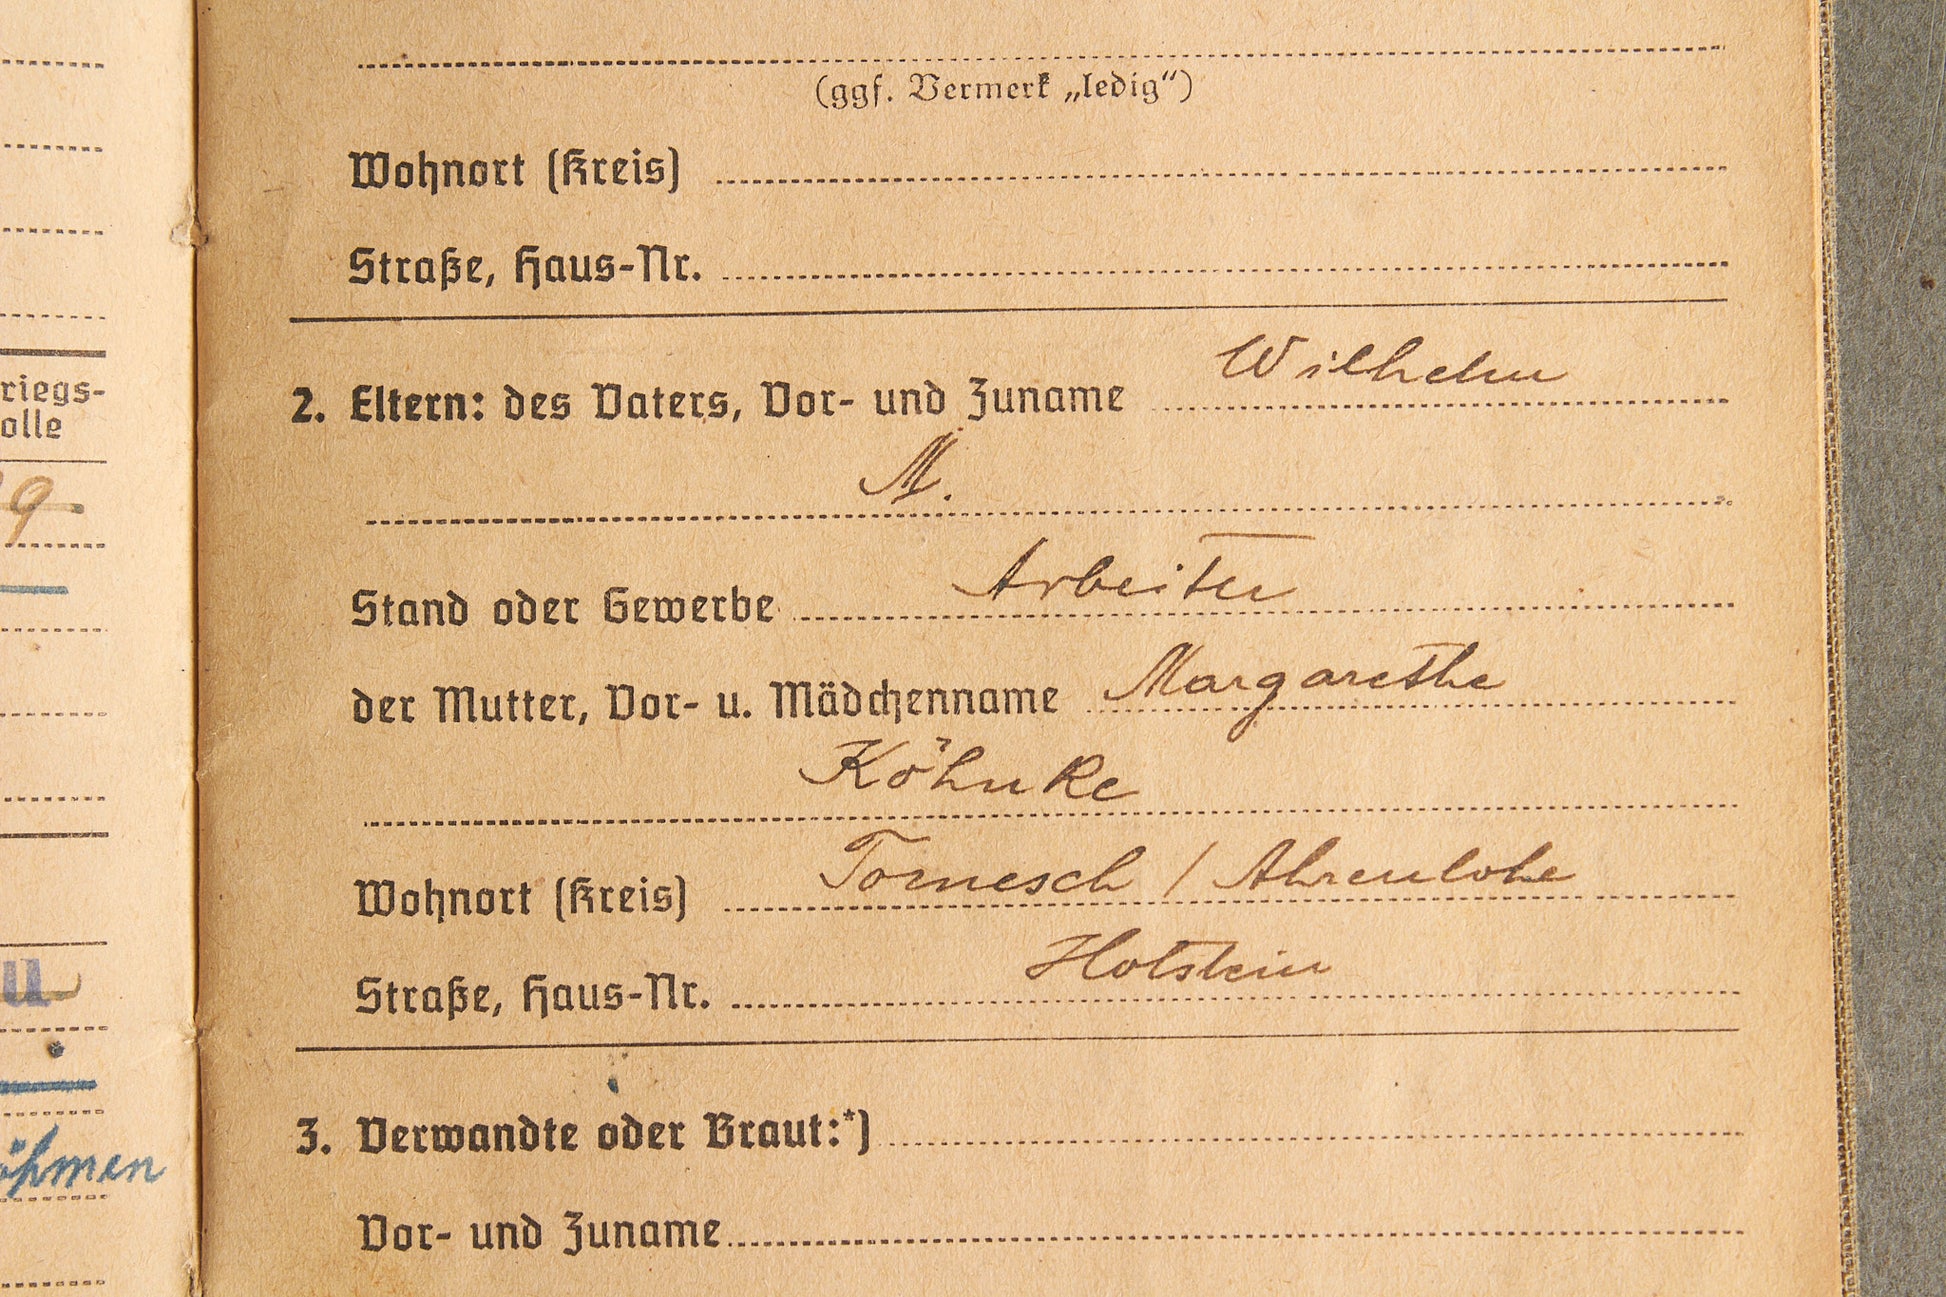 riegs-
olle
9
u
öhmen
(ggf. Vermerk „ledig“)
Wohnort (Kreis)
Straße, Haus-Nr.
2. Eltern: des Vaters, Vor- und Zuname Wilhelm
M.
Stand oder Gewerbe Arbeiter
der Mutter, Vor- u. Mädchenname Margarethe
Köhnke
Wohnort (Kreis) Tornesch / Ahrenlohe
Straße, Haus-Nr. Holstein
3. Verwandte oder Braut:*)
Vor- und Zuname